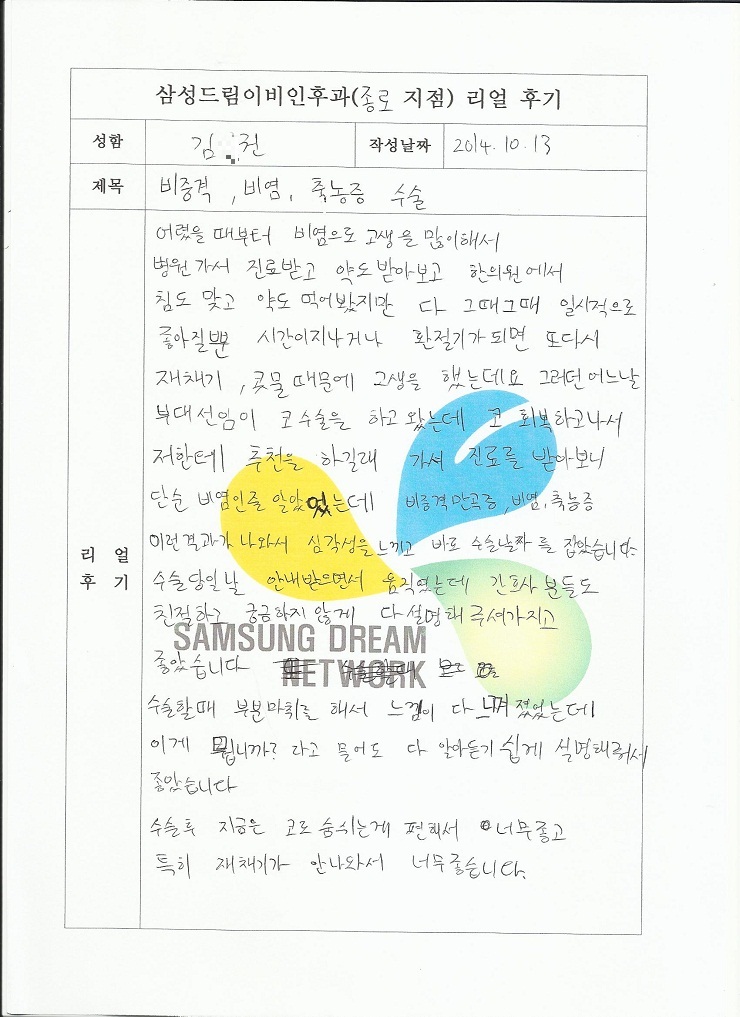 삼성드림이비인후과(종로 지점) 리얼 후기
성함 김 권 작성날짜 2014.10.13
제목 비중격, 비염, 축농증 수술
리얼 후기
어렸을 때부터 비염으로 고생을 많이해서
병원가서 진료받고 약도받아보고 한의원에서
침도 맞고 약도 먹어봤지만 다 그때그때 일시적으로
좋아질뿐 시간이지나거나 환절기가되면 또다시
재채기, 콧물때문에 고생을 했는데요 그러던어느날
부대선임이 코수술을 하고왔는데 코 회복하고나서
저한테 추천을 하길래 가서 진료를 받아보니
단순 비염인줄 알았었는데 비중격만곡증, 비염, 축농증
이런결과가나와서 심각성을느끼고 바로 수술날짜를 잡았습니다.
수술당일날 안내받으면서 움직였는데 간호사 분들도
친절하고 궁금하지않게 다설명해주셔가지고
SAMSUNG DREAM
NETWORK
좋았습니다
수술할때 부분마취를 해서 느낌이 다 느껴졌었는데
이게 뭡니까? 라고 물어도 다 알아듣기쉽게 설명해줘서
좋았습니다
수술후 지금은 코로숨쉬는게 편해서 너무좋고
특히 재채기가 안나와서 너무좋습니다.